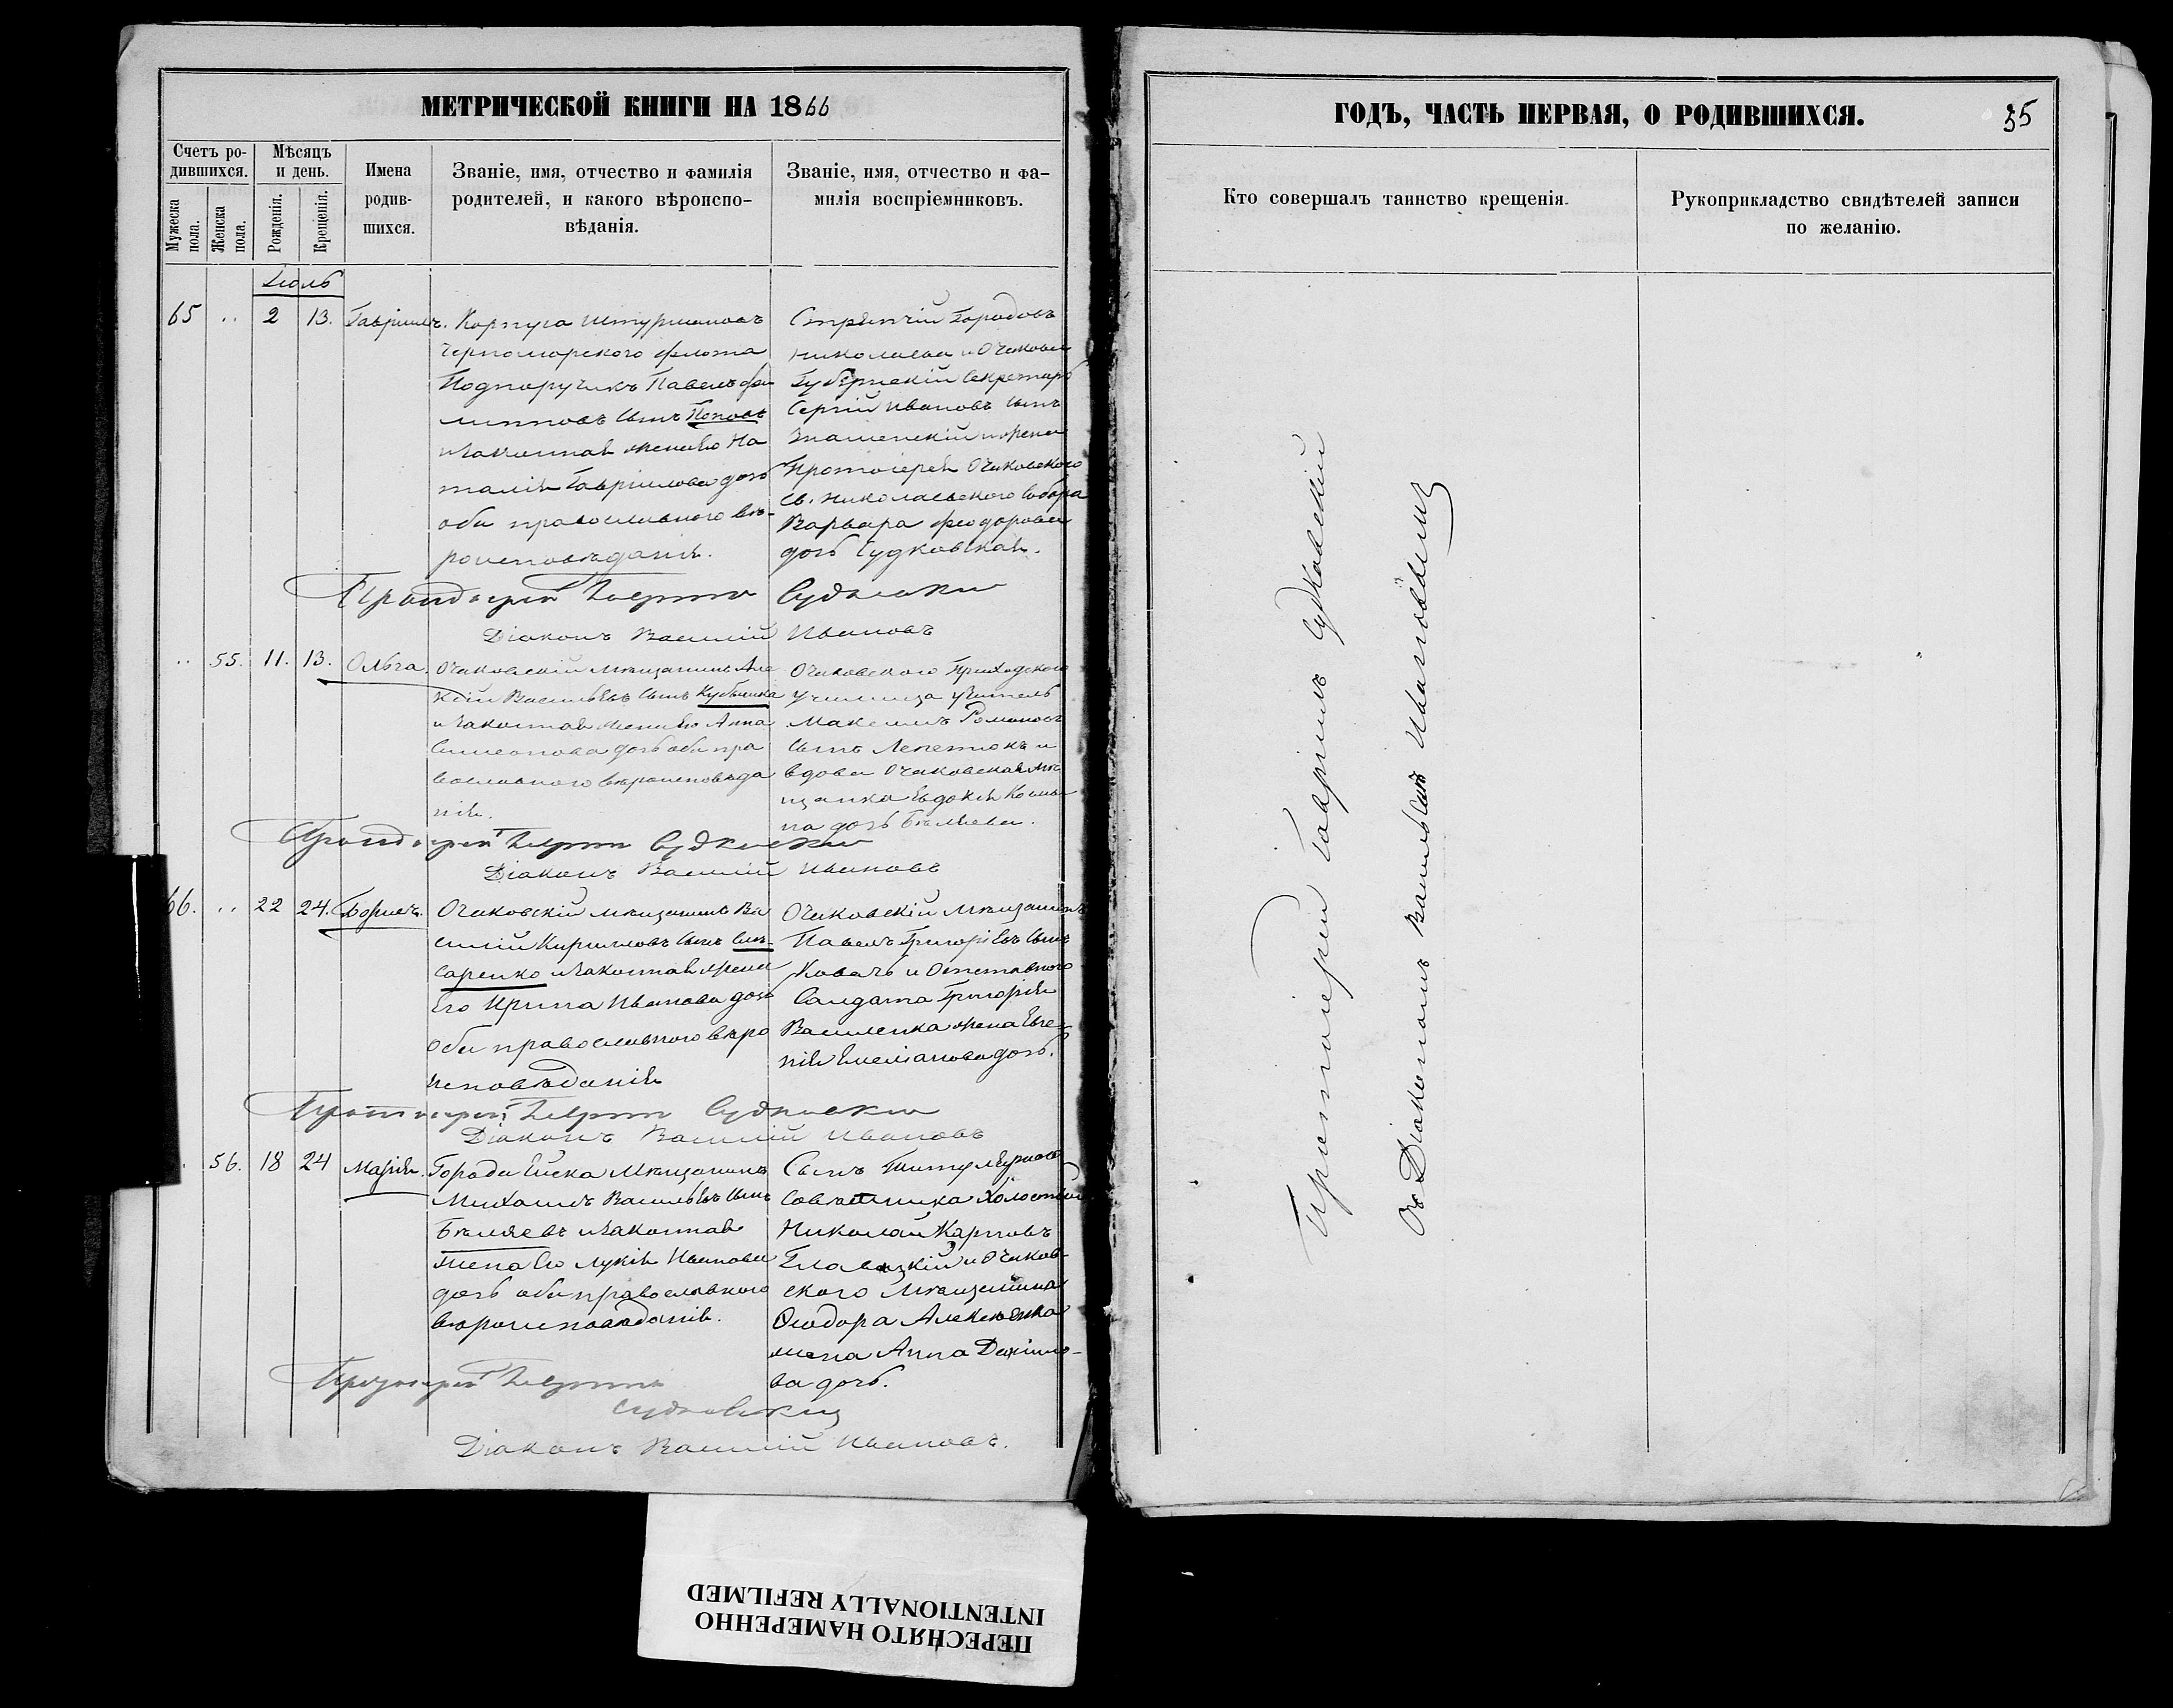 МЕТРИЧЕСКОЙ КНИГИ НА 1866
Счетъ ро-
дившихся.
Мужеска пола.
Женска пола.
Мѣсяцъ
и день.
Рожденія.
Крещенія.
Имена
родив-
шихся.
Званіе, имя, отчество и фамилія
родителей, и какого вѣроиспо-
вѣданія.
Званіе, имя, отчество и фа-
милія воспріемниковъ.
Іюль
65 .. 2 13. Гавріилъ.
Корпуса Штурмановъ
Черноморского флота
Подпоручикъ Павелъ Фи
липповъ сынъ Поповъ
и законная жена Его На
талія Гавріилова дочь
оба православного вѣ-
роисповѣданія.
Стряпчій Городовъ
Николаева и Очакова
Губернскій Секретарь
Сергій Ивановъ сынъ
Знаменскій и жена
Протоіерея Очаковского
Св. Николаевского Собора
Варвара Феодорова
дочь Судковская.
Протоіерей Гавріилъ Судковскій
Діаконъ Василій Ивановъ
.. 55. 11. 13. Ольга.
Очаковскій мѣщанинъ Але
ксѣй Васильевъ сынъ
и законная жена Его Анна
Симеонова дочь оба пра
вославного вѣроисповѣда
нія.
Очаковского Приходского
Училища Учитель
Максимъ Романовъ
сынъ Лепетюкъ и
вдова Очаковская мѣ
щанка Евдокія Косми
на дочь Бѣляева.
Протоіерей Гавріилъ Судковскій
Діаконъ Василій Ивановъ
66. .. 22 24. Борисъ.
Очаковскій мѣщанинъ Ва
силій Кирилловъ сынъ Слю-
саренко и законная жена
Его Ирина Иванова дочь
Оба православного вѣро
исповѣданія
Очаковскій мѣщанинъ
Павелъ Григорьевъ сынъ
Ковачъ и Отставного
Солдата Григорія
Василенка жена Евге-
нія Емеліанова дочь.
Протоіерей Гавріилъ Судковскій
Діаконъ Василій Ивановъ
56. 18 24 Марія.
Города Ейска мѣщанинъ
Михаилъ Васильевъ сынъ
Бѣляевъ и законная
жена Его Лукія Иванова
дочь оба православного
вѣроисповѣданія.
Сынъ Титулярного
Совѣтника Холостый
Николай Карповъ
и Очаков-
ского мѣщанина
Ѳеодора Алексѣенка
жена Анна Данило-
ва дочь.
Протоіерей Гавріилъ
Судковскій
Діаконъ Василій Ивановъ.
ГОДЪ, ЧАСТЬ ПЕРВАЯ, О РОДИВШИХСЯ.
35
Кто совершалъ таинство крещенія.
Рукоприкладство свидѣтелей записи
по желанію.
Протоіерей Гавріилъ Судковскій
Съ Діакономъ Василіемъ Ивановымъ
ПЕРЕСНЯТО НАМЕРЕННО
INTENTIONALLY REFILMED